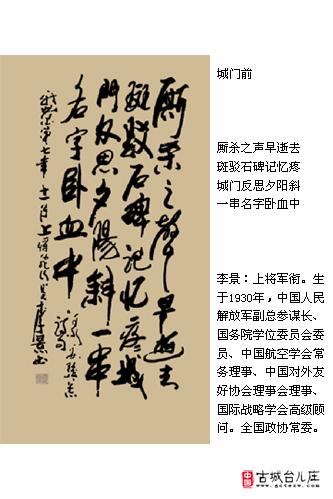 城门前
厮杀之声早逝去
斑驳石碑记忆疼
城门反思夕阳斜
一串名字卧血中
李景：上将军衔。生
于1930年，中国人民
解放军副总参谋长、
国务院学位委员会委
员、中国航空学会常
务理事、中国对外友
好协会理事会理事、
国际战略学会高级顾
问。全国政协常委。
厮杀之聲早逝去
斑駁石碑记忆疼城
門反思夕陽斜一串
名字卧血中
中国
古城台儿庄